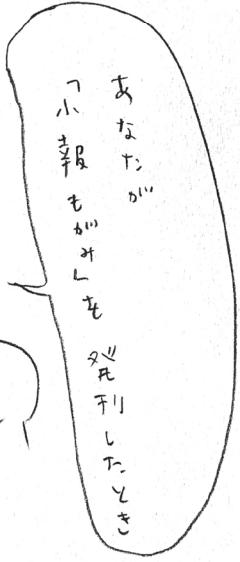 あなたが
「小報もがみ」を
発刊したとき